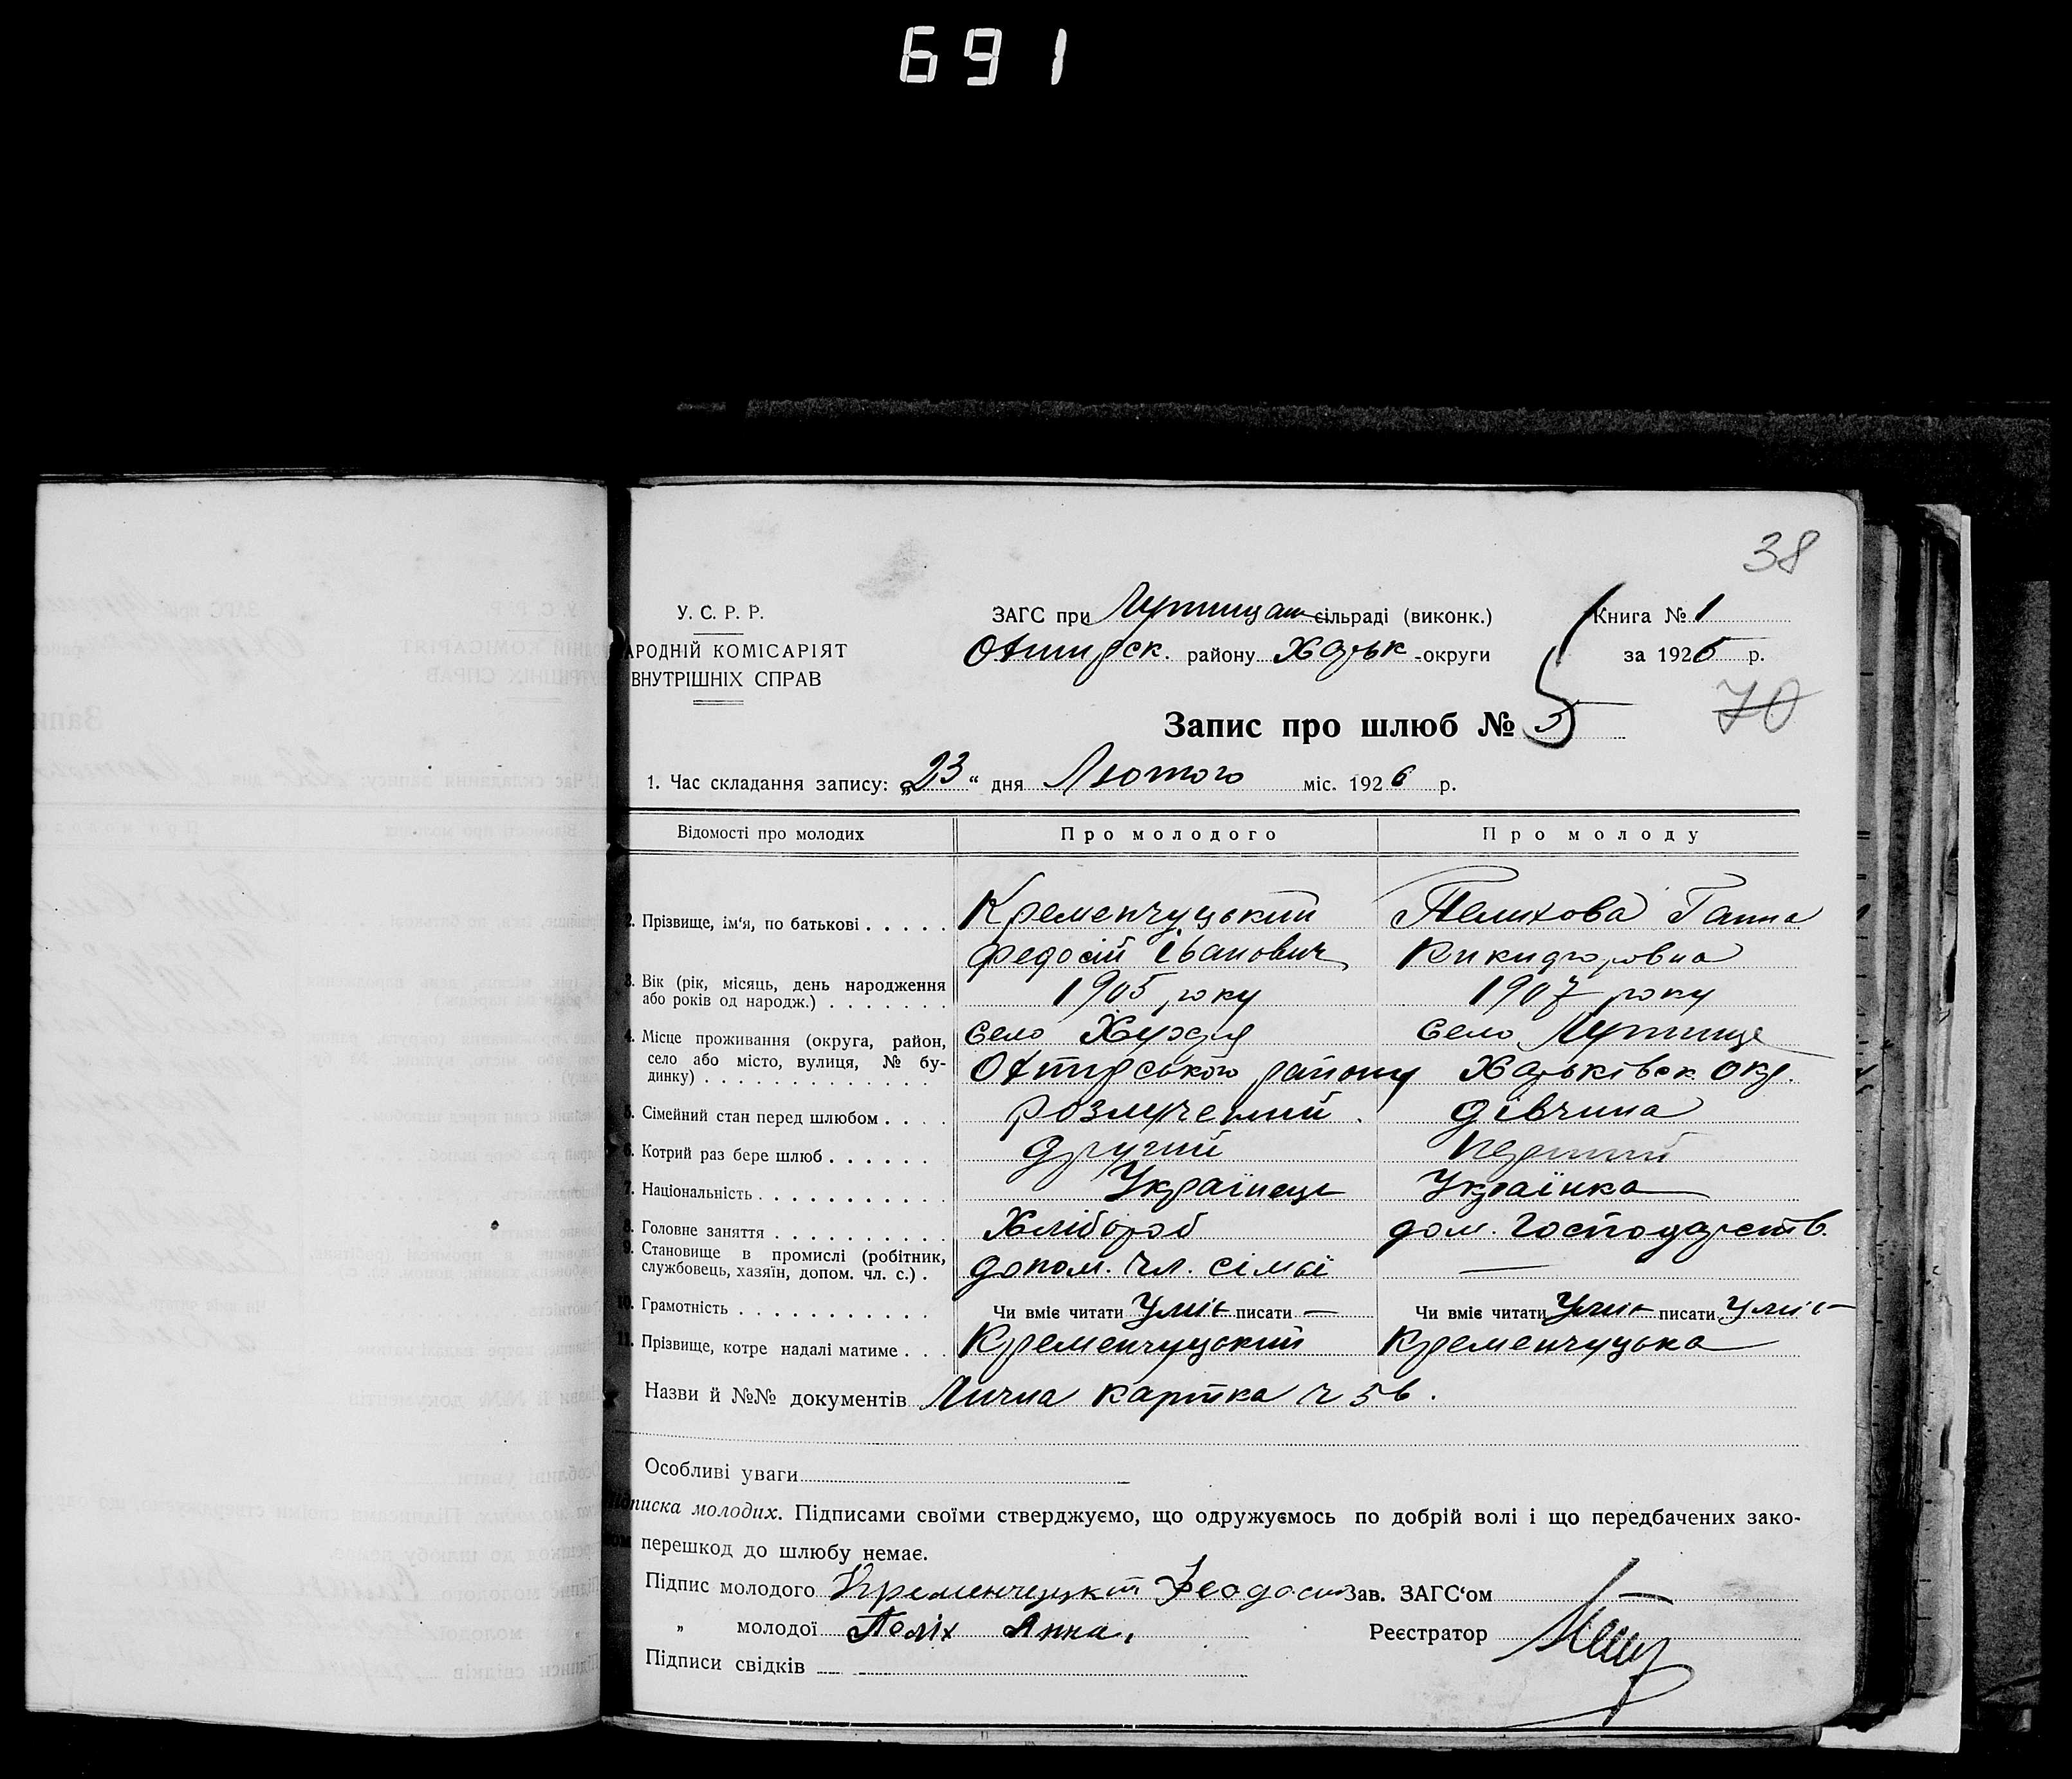 691
38
У. С. Р. Р.
АРОДНІЙ КОМІСАРІЯТ
ВНУТРІШНІХ СПРАВ
ЗАГС при Лутищан сільраді (виконк.)
Охтирск. району Харьк -округи
Книга № 1
за 1926 р.
70
Запис про шлюб № 5
1. Час складання запису: „23“ дня Лютого міс. 1926 р.
Відомості про молодих Про молодого Про молоду
2. Прізвище, ім'я, по батькові . . . . . Кременчуцький Пелихова Ганна
Федосій Іванович
3. Вік (рік, місяць, день народження
або років од народж.) . . . . . . . 1905 року 1907 року
4. Місце проживання (округа, район, село Хухря село Лутище
село або місто, вулиця, № бу-
динку) . . . . . . . . . . . . . . Охтирського району Харьківск. Окр.
5. Сімейний стан перед шлюбом . . . . розлучений . дівчина
6. Котрий раз бере шлюб . . . . . . другий перший
7. Національність . . . . . . . . . . . Українець Українка
8. Головне заняття . . . . . . . . . . Хлібороб дом. господарств.
9. Становище в промислі (робітник,
службовець, хазяїн, допом. чл. с.) . допом. чл. сімьї —
10. Грамотність . . . . . . . . . . . Чи вміє читати Уміє писати — Чи вміє читати Уміє писати Уміє
11. Прізвище, котре надалі матиме . . . Кременчуцький Кременчуцька
Назви й №№ документів Лична картка ч 56 .
Особливі уваги
писка молодих. Підписами своїми стверджуємо, що одружуємось по добрій волі і що передбачених зако-
перешкод до шлюбу немає.
Підпис молодого Кременчуцкий Феодоси Зав. ЗАГС'ом
„ молодої Пеліх Анна. Реєстратор
Підписи свідків